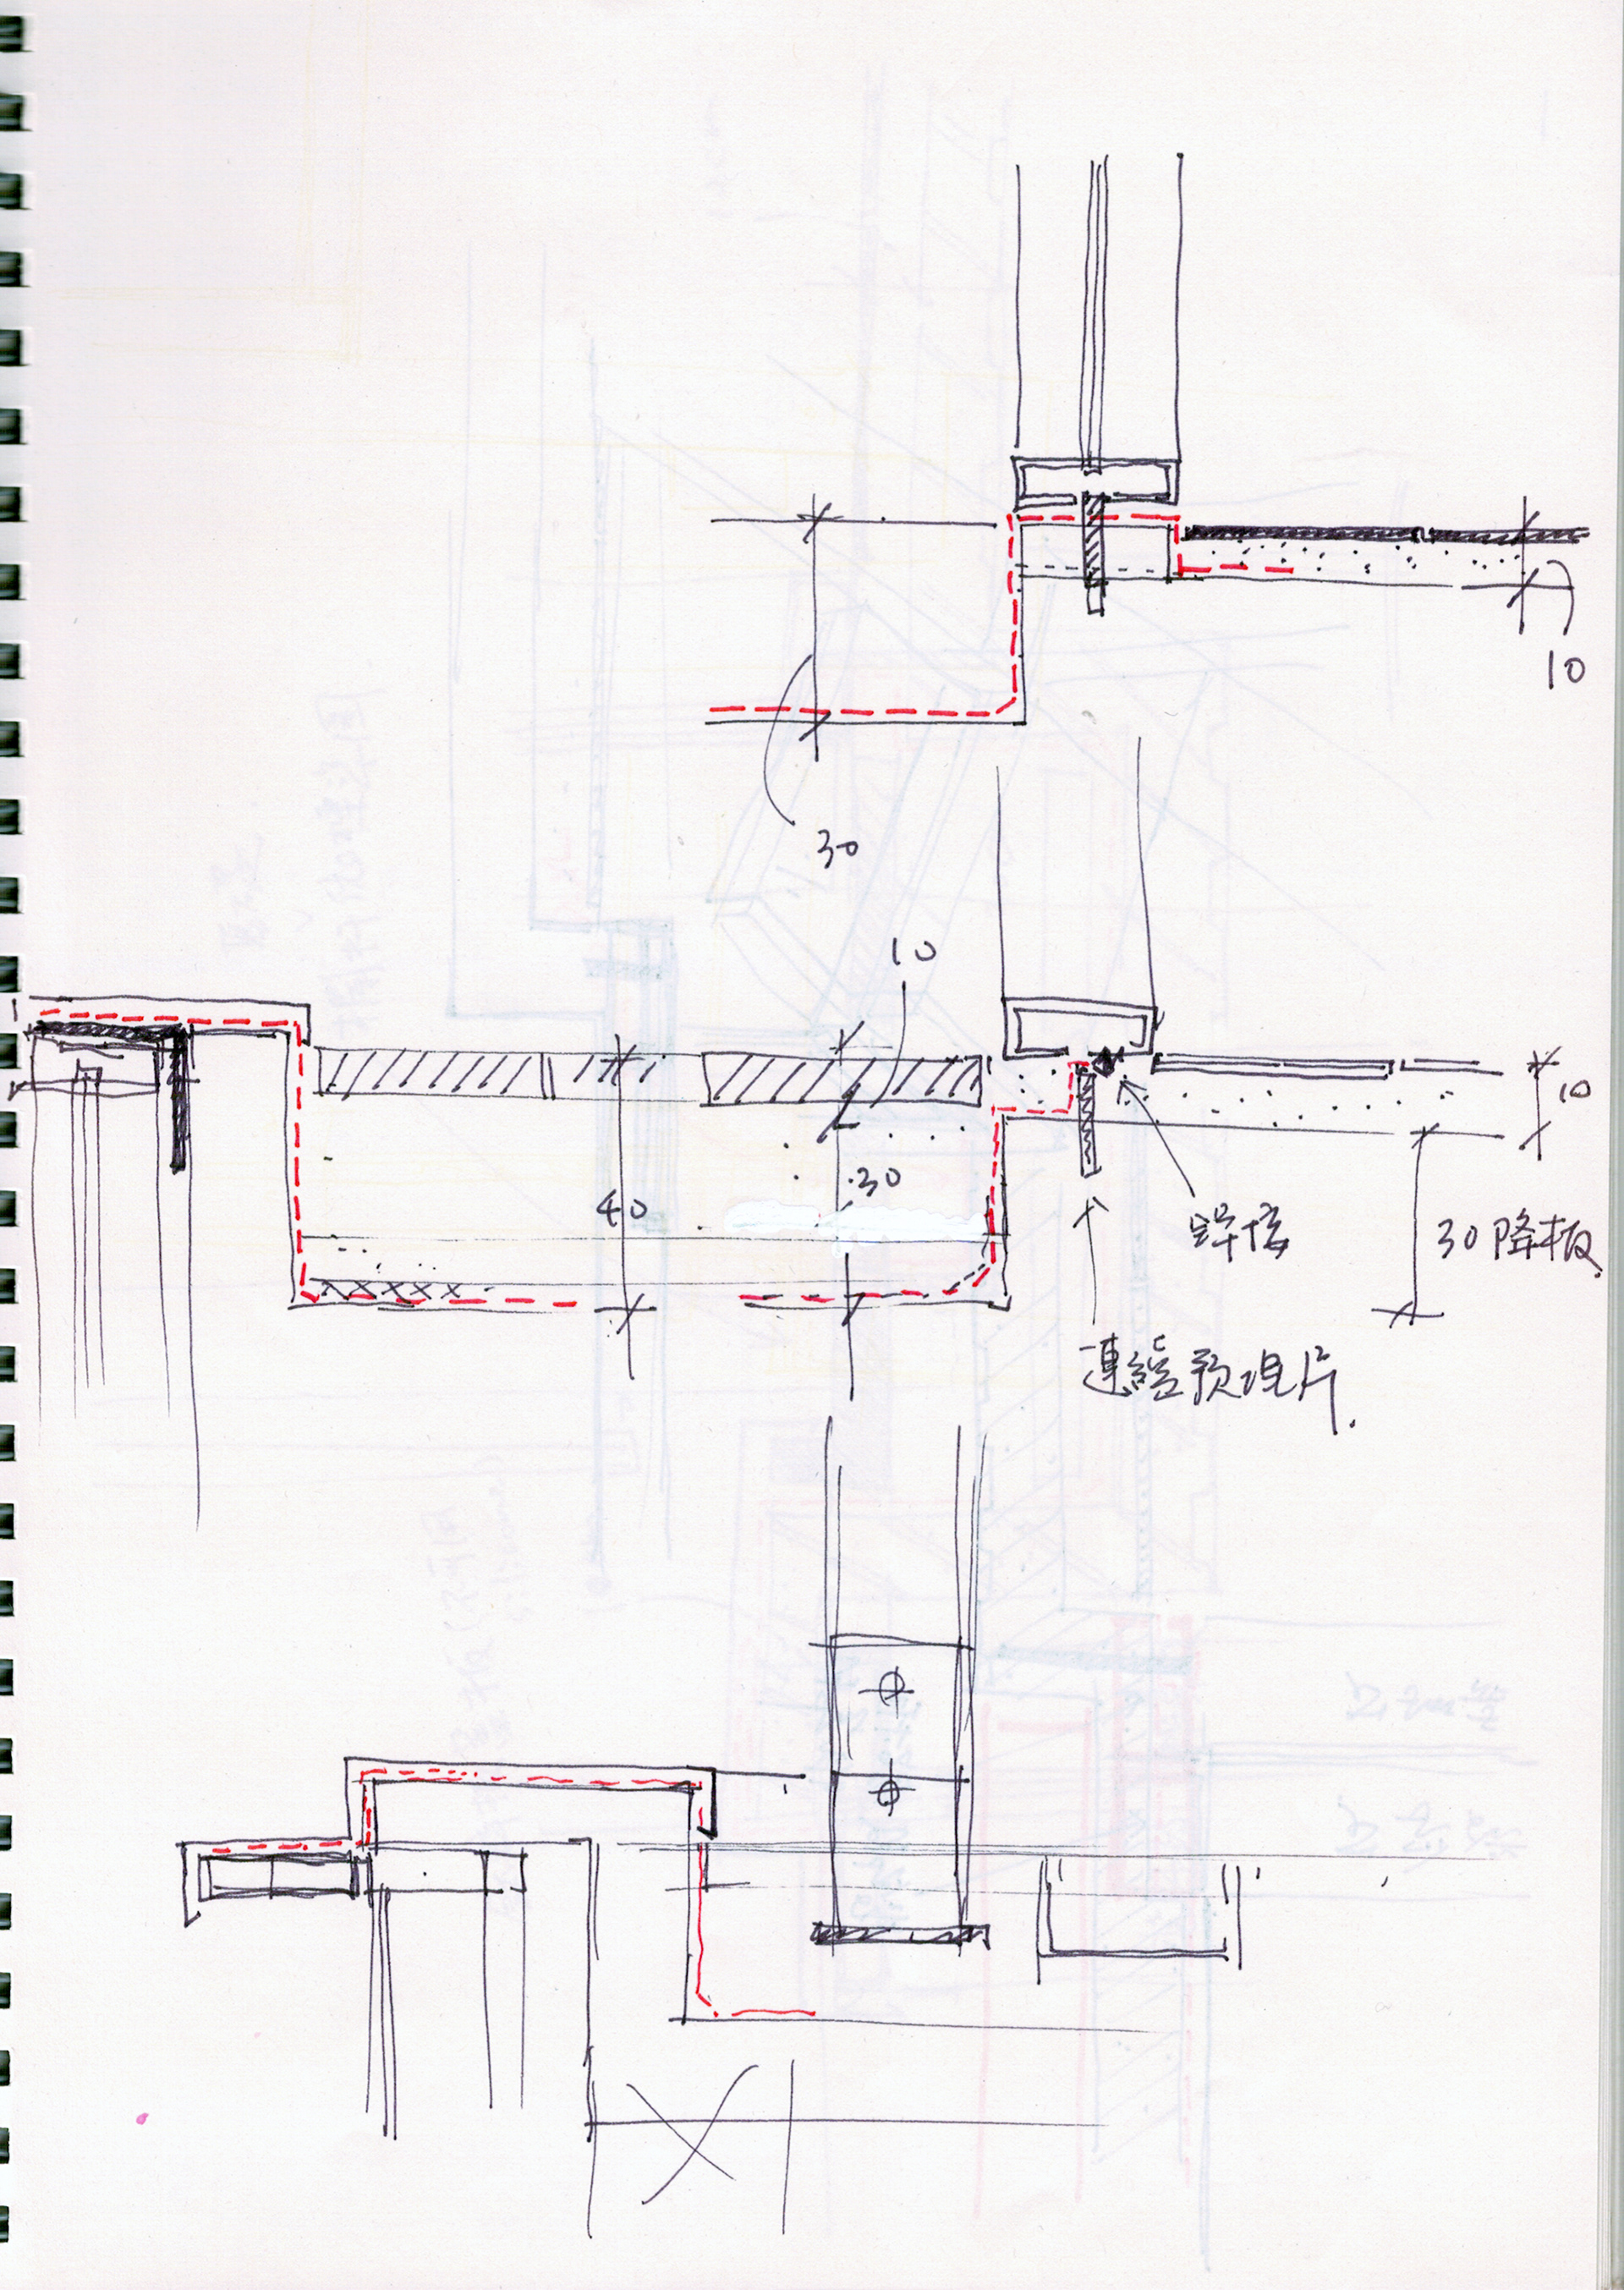 10
30
10
10
30
40
焊接
30降板
連續預埋片.